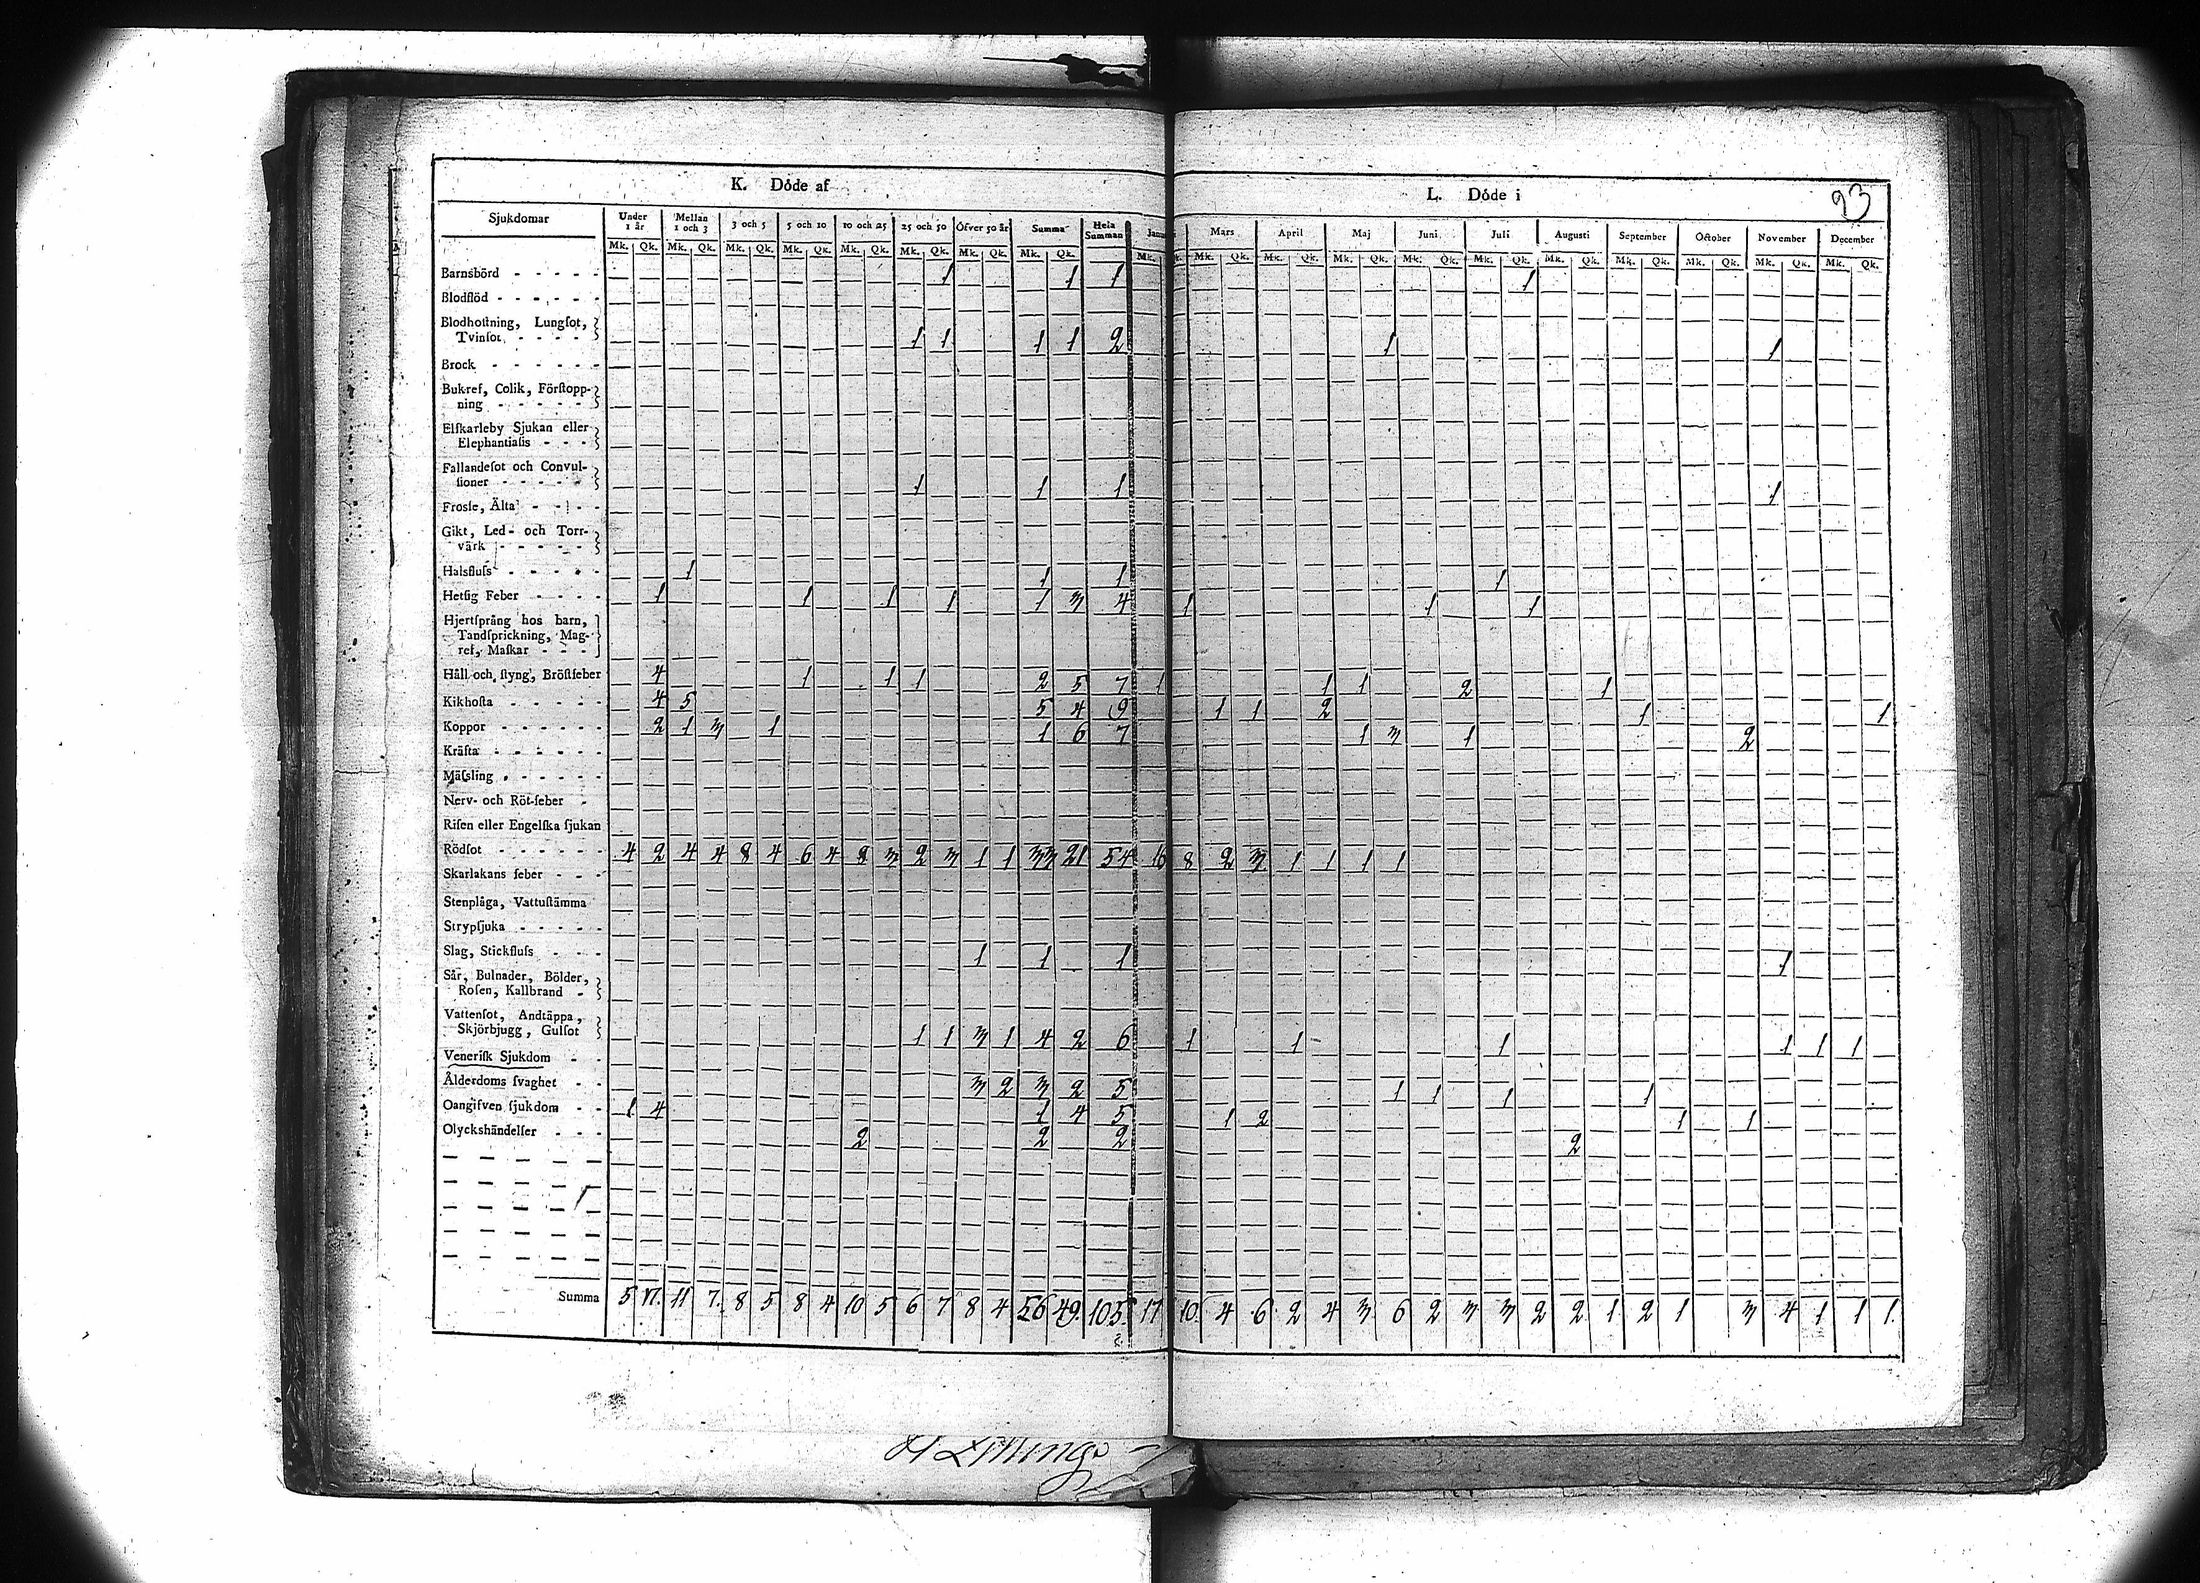 K. Döde af
L. Döde i
23
Sjukdomar Under 1 år Mellan 1 och 3 3 och 5 5 och 10 10 och 25 25 och 50 Öfver 50 år Summa Hela Summan Mars April Maj Juni Juli Augusti September October November December
Mk. Qk. Mk. Qk. Mk. Qk. Mk. Qk. Mk. Qk. Mk. Qk. Mk. Qk. Mk. Qk. Mk. Mk. Qk. Mk. Qk. Mk. Qk. Mk. Qk. Mk. Qk. Mk. Qk. Mk. Qk. Mk. Qk. Mk. Qk. Mk. Qk.
Barnsbörd 1 1 1 1
Blodflöd
Blodhostning, Lungsot,
Tvinsot 1 1 1 1 2 1 1
Brock
Bukref, Colik, Förstopp-
ning
Elskarleby Sjukan eller
Elephantiasis
Fallandesot och Convul-
sioner 1 1 1 1
Frossa, Älta
Gikt, Led- och Torr-
värk
Halsfluss 1 1 1 1
Hetsig Feber 1 1 1 1 1 3 4 1 1 1
Hjertsprång hos barn,
Tandsprickning, Mag-
ref, Maskar
Håll och styng, Bröstfeber 4 1 1 1 2 5 7 1 1 1 2 1
Kikhosta 4 5 5 4 9 1 1 2 1 1
Koppor 2 1 3 1 1 6 7 1 3 1 2
Kräfta
Mässling
Nerv- och Röt-feber
Risen eller Engelska sjukan
Rödsot 4 2 4 4 8 4 6 4 8 3 2 3 1 1 33 21 54 16 8 2 3 1 1 1 1
Skarlakans feber
Stenplåga, Vattustämma
Strypsjuka
Slag, Stickfluss 1 1 1 1
Sår, Bulnader, Bölder,
Rosen, Kallbrand
Vattensot, Andtäppa,
Skjörbjugg, Gulsot 1 1 3 1 4 2 6 1 1 1 1 1 1
Venerisk Sjukdom
Ålderdoms svaghet 3 2 3 2 5 1 1 1 1
Oangifven sjukdom 1 4 1 4 5 1 2 1 1
Olyckshändelser 2 2 2 2
Summa 5 17. 11 7. 8 5 8 4 10 5 6 7 8 4 56 49. 105. 17 10. 4 6 2 4 3 6 2 3 3 2 2 1 2 1 3 4 1 1 1.